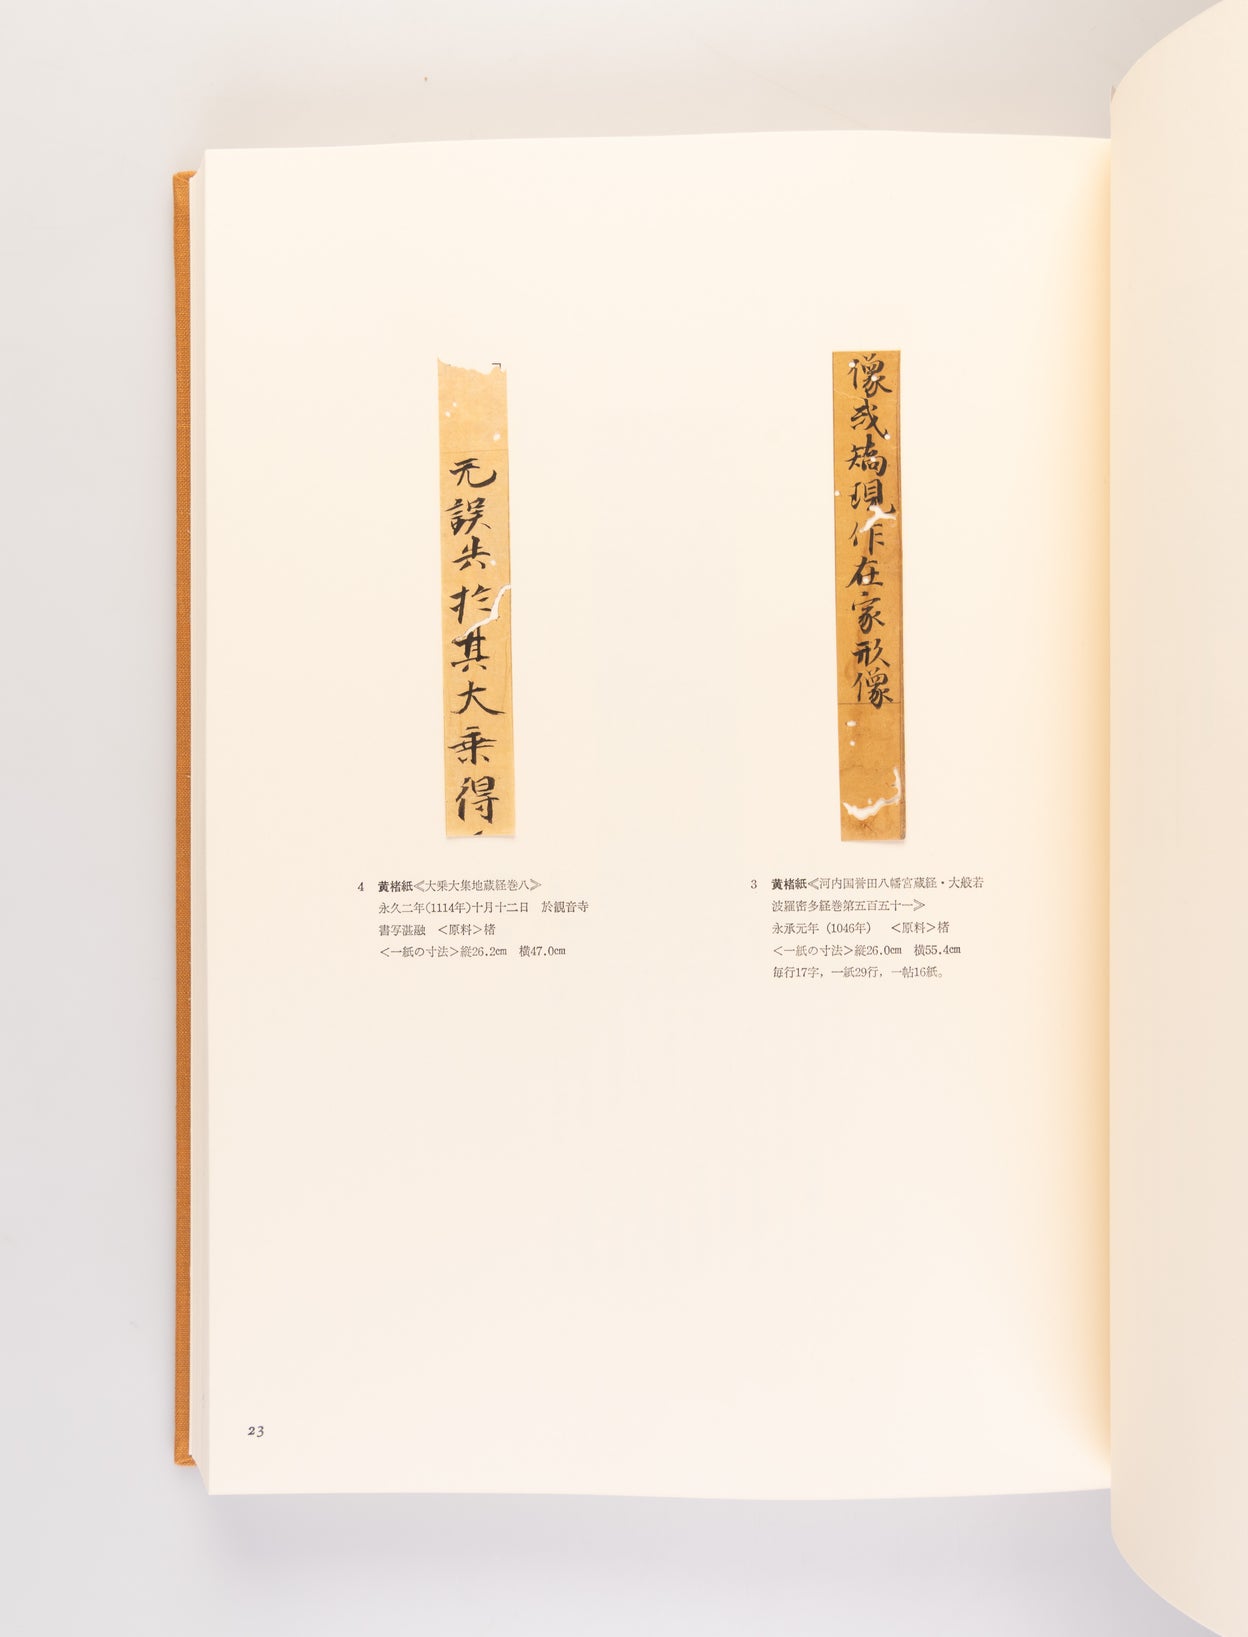 像或矯現作在家形像
3 黄楮紙≪河内国誉田八幡宮蔵経・大般若
波羅密多経巻第五百五十一≫
永承元年（1046年） ＜原料＞楮
＜一紙の寸法＞縦26.0cm 横55.4cm
毎行17字，一紙29行，一帖16紙。
无誤失於其大乗得
4 黄楮紙≪大乗大集地蔵経巻八≫
永久二年(1114年)十月十二日 於観音寺
書写湛融 ＜原料＞楮
＜一紙の寸法＞縦26.2cm 横47.0cm
23